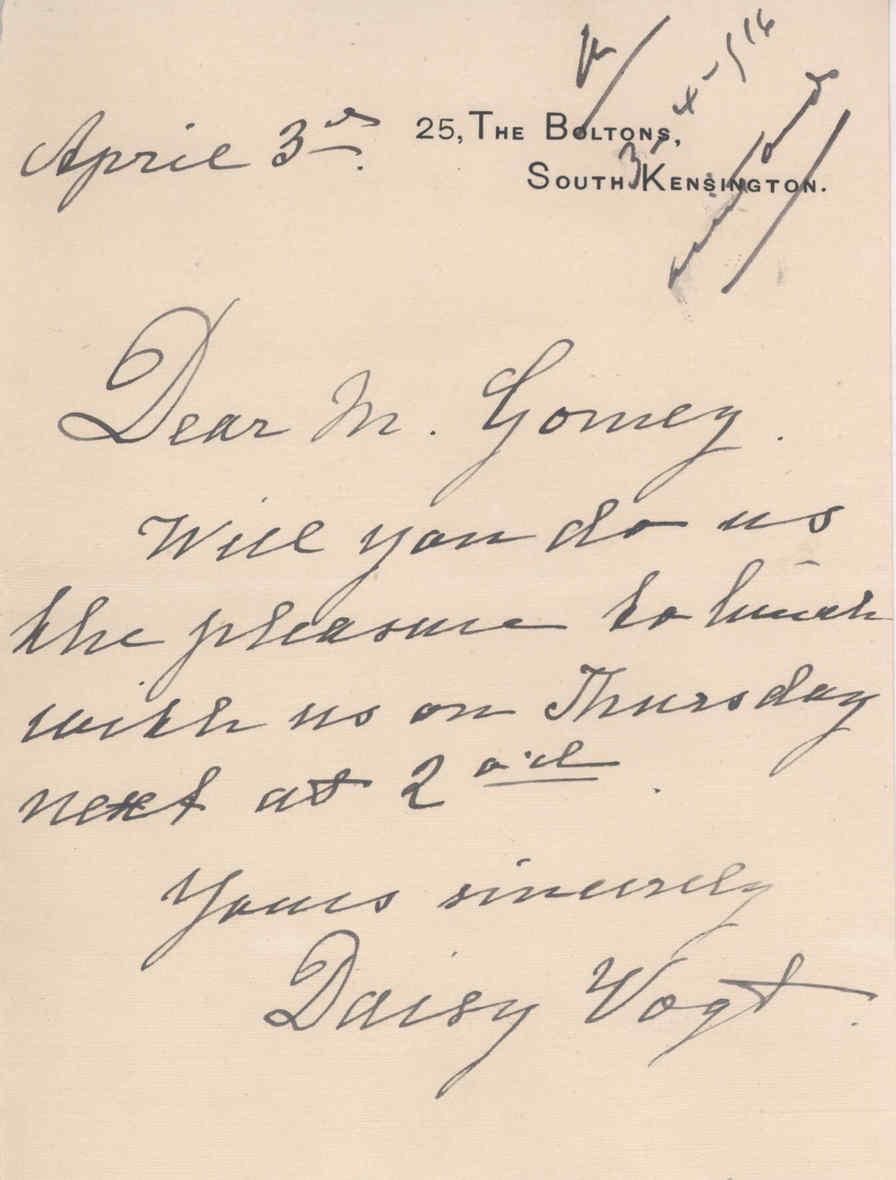 April 3rd.
25, THE BOLTONS,
SOUTH KENSINGTON.
Dear M.
Will you do us
the pleasure to lunch
with us on Thursday
next at 2 o'cl.
Yours sincerely
Daisy Vogt.